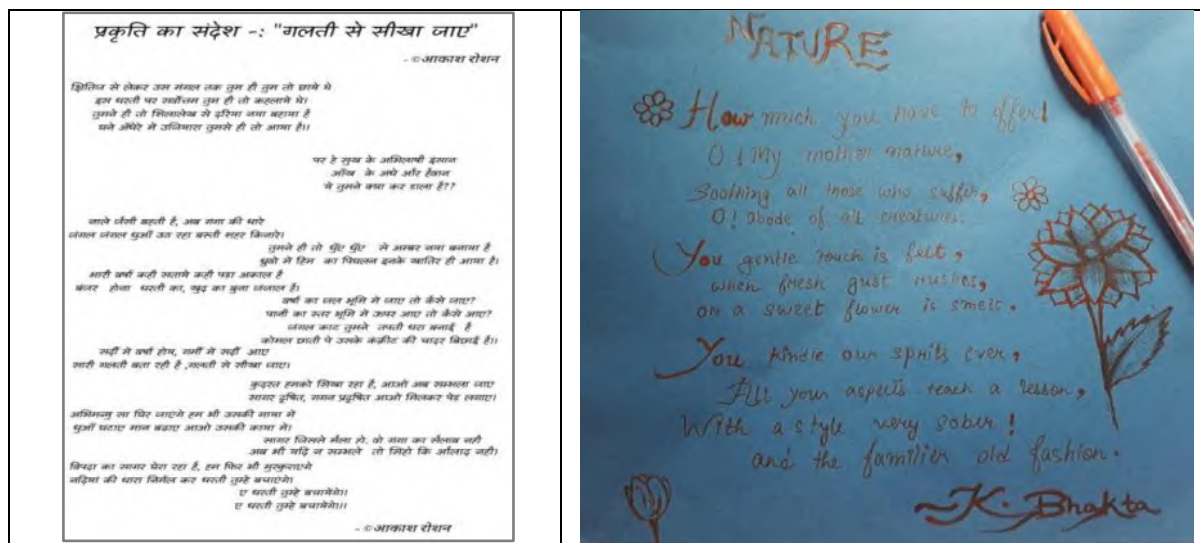 प्रकृति का संदेश -: "गलती से सीखा जाए"
- ©आकाश रोशन
क्षितिज से लेकर उस मंगल तक तुम ही तुम तो छाये थे
इस धरती पर सर्वोत्तम तुम ही तो कहलाये थे।
तुमने ही तो शिलालेख से दरिया नया बहाया है
घने अँधेरे में उजियारा तुमसे ही तो आया है।।
पर हे सुख के अभिलाषी इंसान
आँख के अंधे और हैवान
ये तुमने क्या कर डाला है??
नाले जैसी बहती है, अब गंगा की धारे
जंगल जंगल धुआँ उठ रहा बस्ती शहर किनारे।
तुमने ही तो धुँए धुँए से अम्बर नया बनाया है
ध्रुवो में हिम का पिघलन इनके खातिर ही आया है।
भारी वर्षा कही सताये कही पड़ा अकाल है
बंजर होना धरती का, खुद का बुना जंजाल है।
वर्षा का जल भूमि में जाए तो कैसे जाए?
पानी का स्तर भूमि में ऊपर आए तो कैसे आए?
जंगल काट तुमने तपती धरा बनाई है
कोमल छाती पे उसके कंक्रीट की चादर बिछाई है।।
सर्दी में वर्षा होय, गर्मी में सर्दी आए
सारी गलती बता रही है ,गलती से सीखा जाए।
कुदरत हमको सिखा रहा है, आओ अब सम्भला जाए
सागर दूषित, गगन प्रदूषित आओ मिलकर पेड़ लगाए।
अभिमन्यु सा घिर जाएंगे हम भी उसकी माया में
धुआँ घटाए मान बढ़ाए आओ उसकी काया में।
सागर जिसले मैला हो. वो गंगा का सैलाब नही
अब भी यदि न सम्भले तो सिंहो कि औलाद नही।
विपदा का सागर घेरा रहा है, हम फिर भी मुस्कुराएगे
नदियां की धारा निर्मल कर धरती तुम्हे बचाएंगे।
ए धरती तुम्हे बचायेंगे।।
ए धरती तुम्हे बचायेंगे।।।
- ©आकाश रोशन
NATURE
How much you have to offer!
O! My mother nature,
Soothing all those who suffer,
O! abode of all creatures.
You gentle touch is felt,
when fresh gust rushes,
on a sweet flower is smelt.
You kindle our sprits ever,
All your aspects teach a lesson,
With a style very sober!
and the familier old fashion.
~K. Bhakta